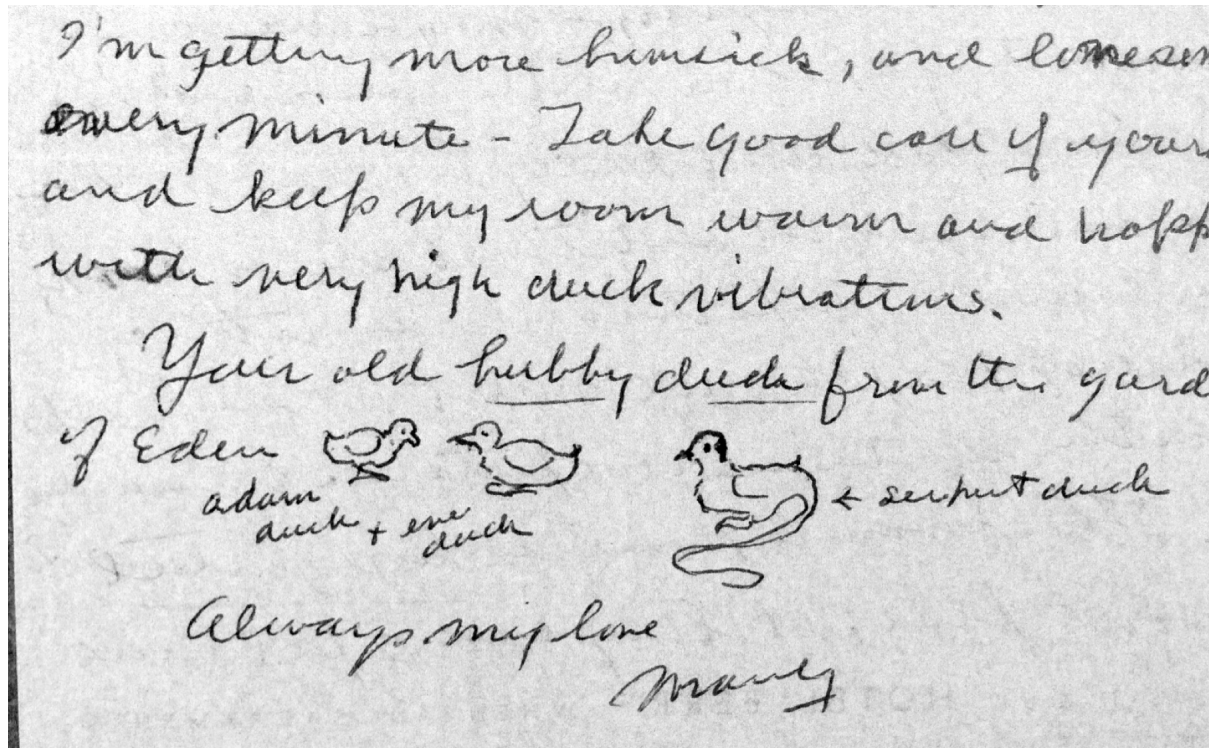 I'm getting more humsick, and lonesom
every minute - Take good care of your
and keep my room warm and happ
with very high duck vibrations.
Your old hubby duck from the gard
of Eden
adam
duck + eve
duck
← serpent duck
Always my love
Manly